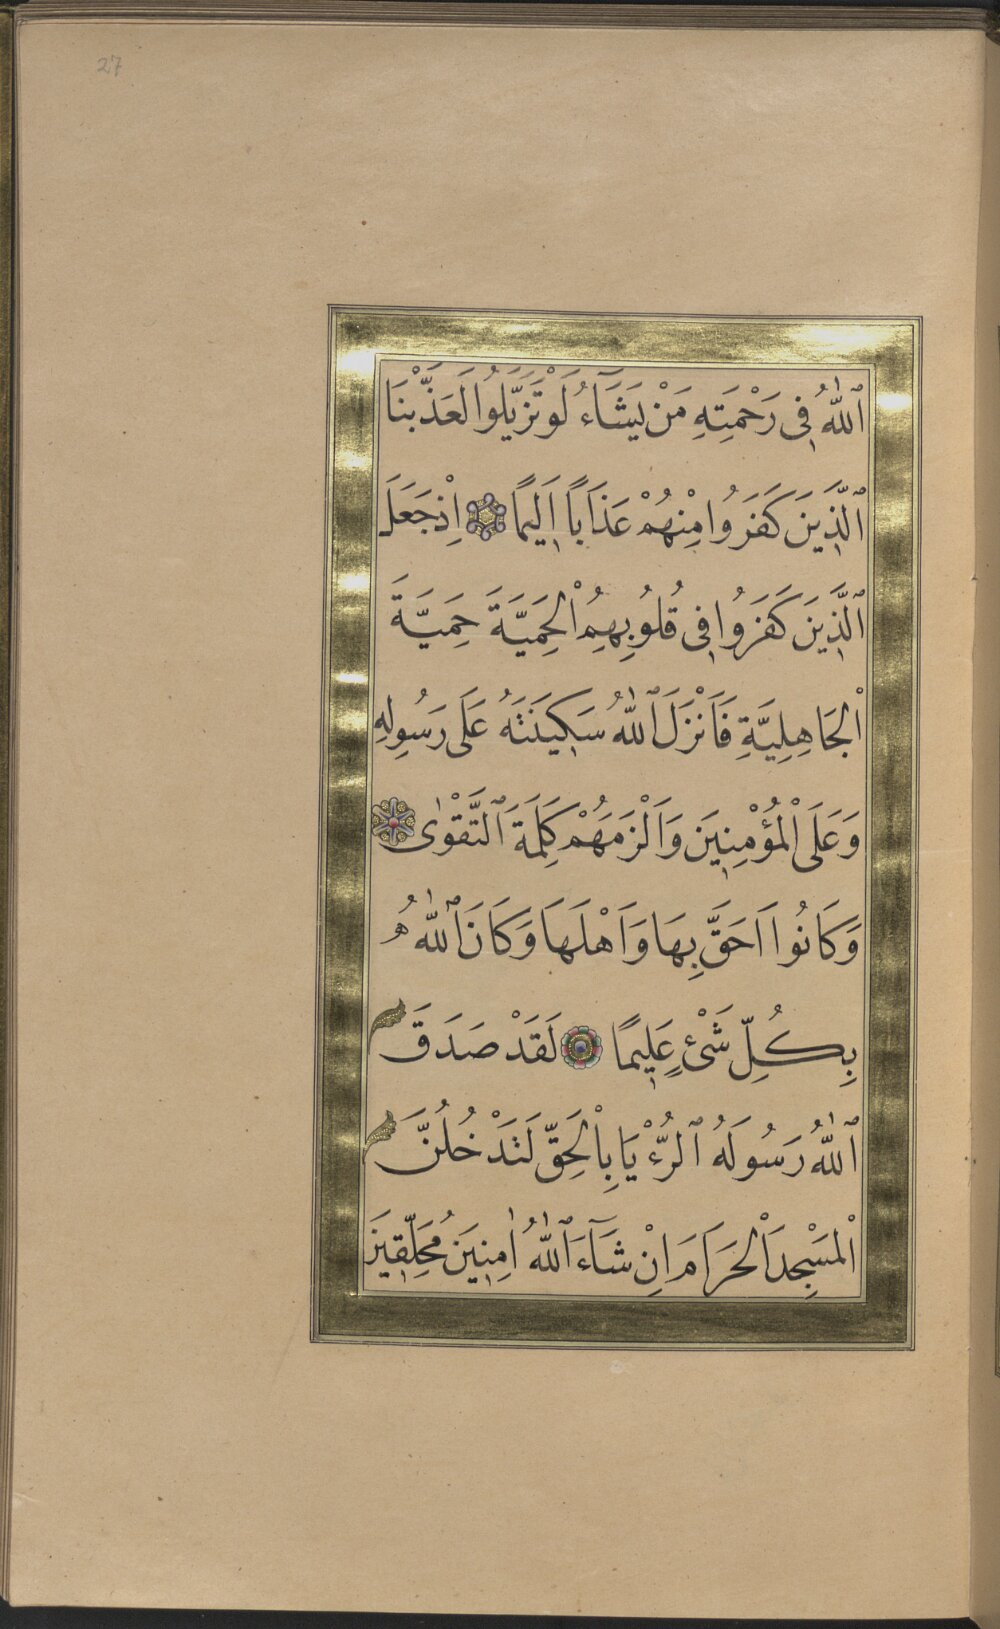 27
ٱللّٰهُ فِى رَحْمَتِهِ مَنْ يَشَآءُ لَوْ تَزَيَّلُوا لَعَذَّبْنَا
ٱلَّذِينَ كَفَرُوا مِنْهُمْ عَذَابًا اَلِيمًا اِذْ جَعَلَ
ٱلَّذِينَ كَفَرُوا فِى قُلُوبِهِمُ ٱلْحَمِيَّةَ حَمِيَّةَ
ٱلْجَاهِلِيَّةِ فَاَنْزَلَ ٱللّٰهُ سَكِينَتَهُ عَلَى رَسُولِهِ
وَعَلَى ٱلْمُؤْمِنِينَ وَاَلْزَمَهُمْ كَلِمَةَ ٱلتَّقْوٰى
وَكَانُوا اَحَقَّ بِهَا وَاَهْلَهَا وَكَانَ ٱللّٰهُ
بِكُلِّ شَىْءٍ عَلِيمًا لَقَدْ صَدَقَ
ٱللّٰهُ رَسُولَهُ ٱلرُّءْيَا بِٱلْحَقِّ لَتَدْخُلُنَّ
ٱلْمَسْجِدَ ٱلْحَرَامَ اِنْ شَآءَ ٱللّٰهُ اٰمِنِينَ مُحَلِّقِينَ